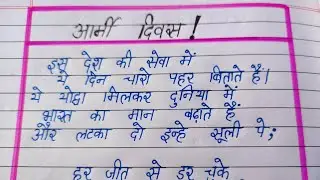 आर्मी दिवस !
इस देश की सेवा में
ये दिन चारो पहर बिताते हैं।
ये योद्धा मिलकर दुनिया में
भारत का मान बढ़ाते हैं
और लटका दो इन्हे सूली पे;
हर जीत से डर चुके